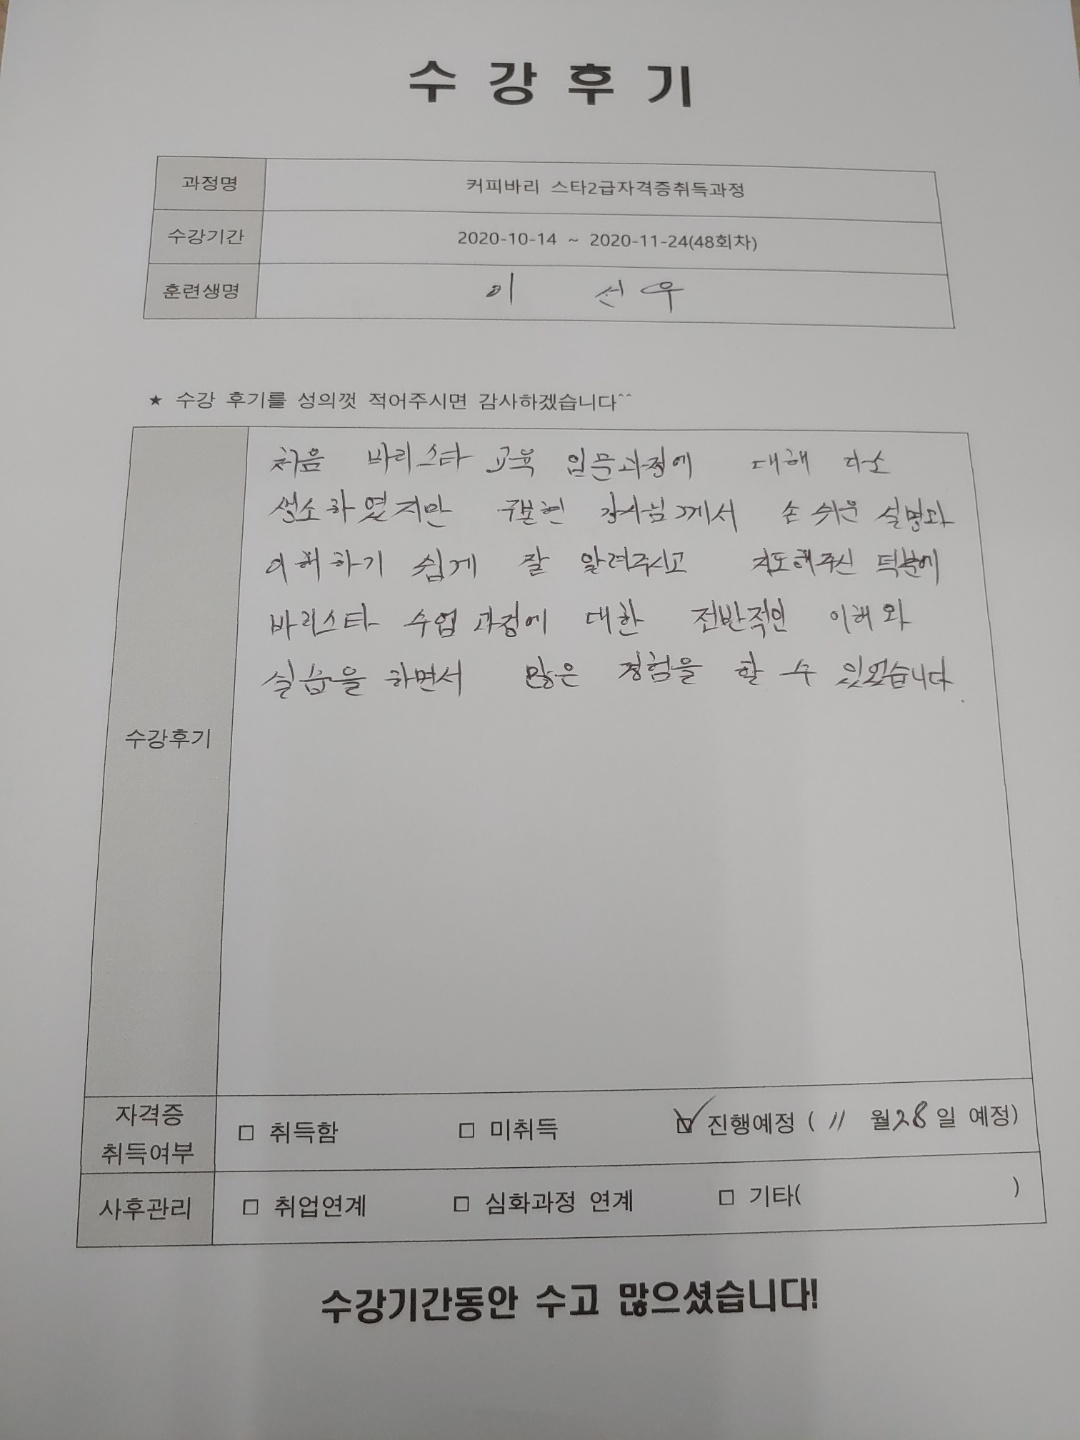 수강후기
과정명 커피바리 스타2급자격증취득과정
수강기간 2020-10-14 ~ 2020-11-24(48회차)
훈련생명 이 선우
★ 수강 후기를 성의껏 적어주시면 감사하겠습니다^^
처음 바리스타 교육 입문과정에 대해 다소
생소하였지만 강사님께서 손 쉬운 설명과
이해하기 쉽게 잘 알려주시고 지도해주신 덕분에
바리스타 수업 과정에 대한 전반적인 이해와
실습을 하면서 많은 경험을 할 수 있었습니다.
수강후기
자격증
취득여부
□ 취득함 □ 미취득 ☑ 진행예정 ( 11 월 28 일 예정)
사후관리 □ 취업연계 □ 심화과정 연계 □ 기타( )
수강기간동안 수고 많으셨습니다!